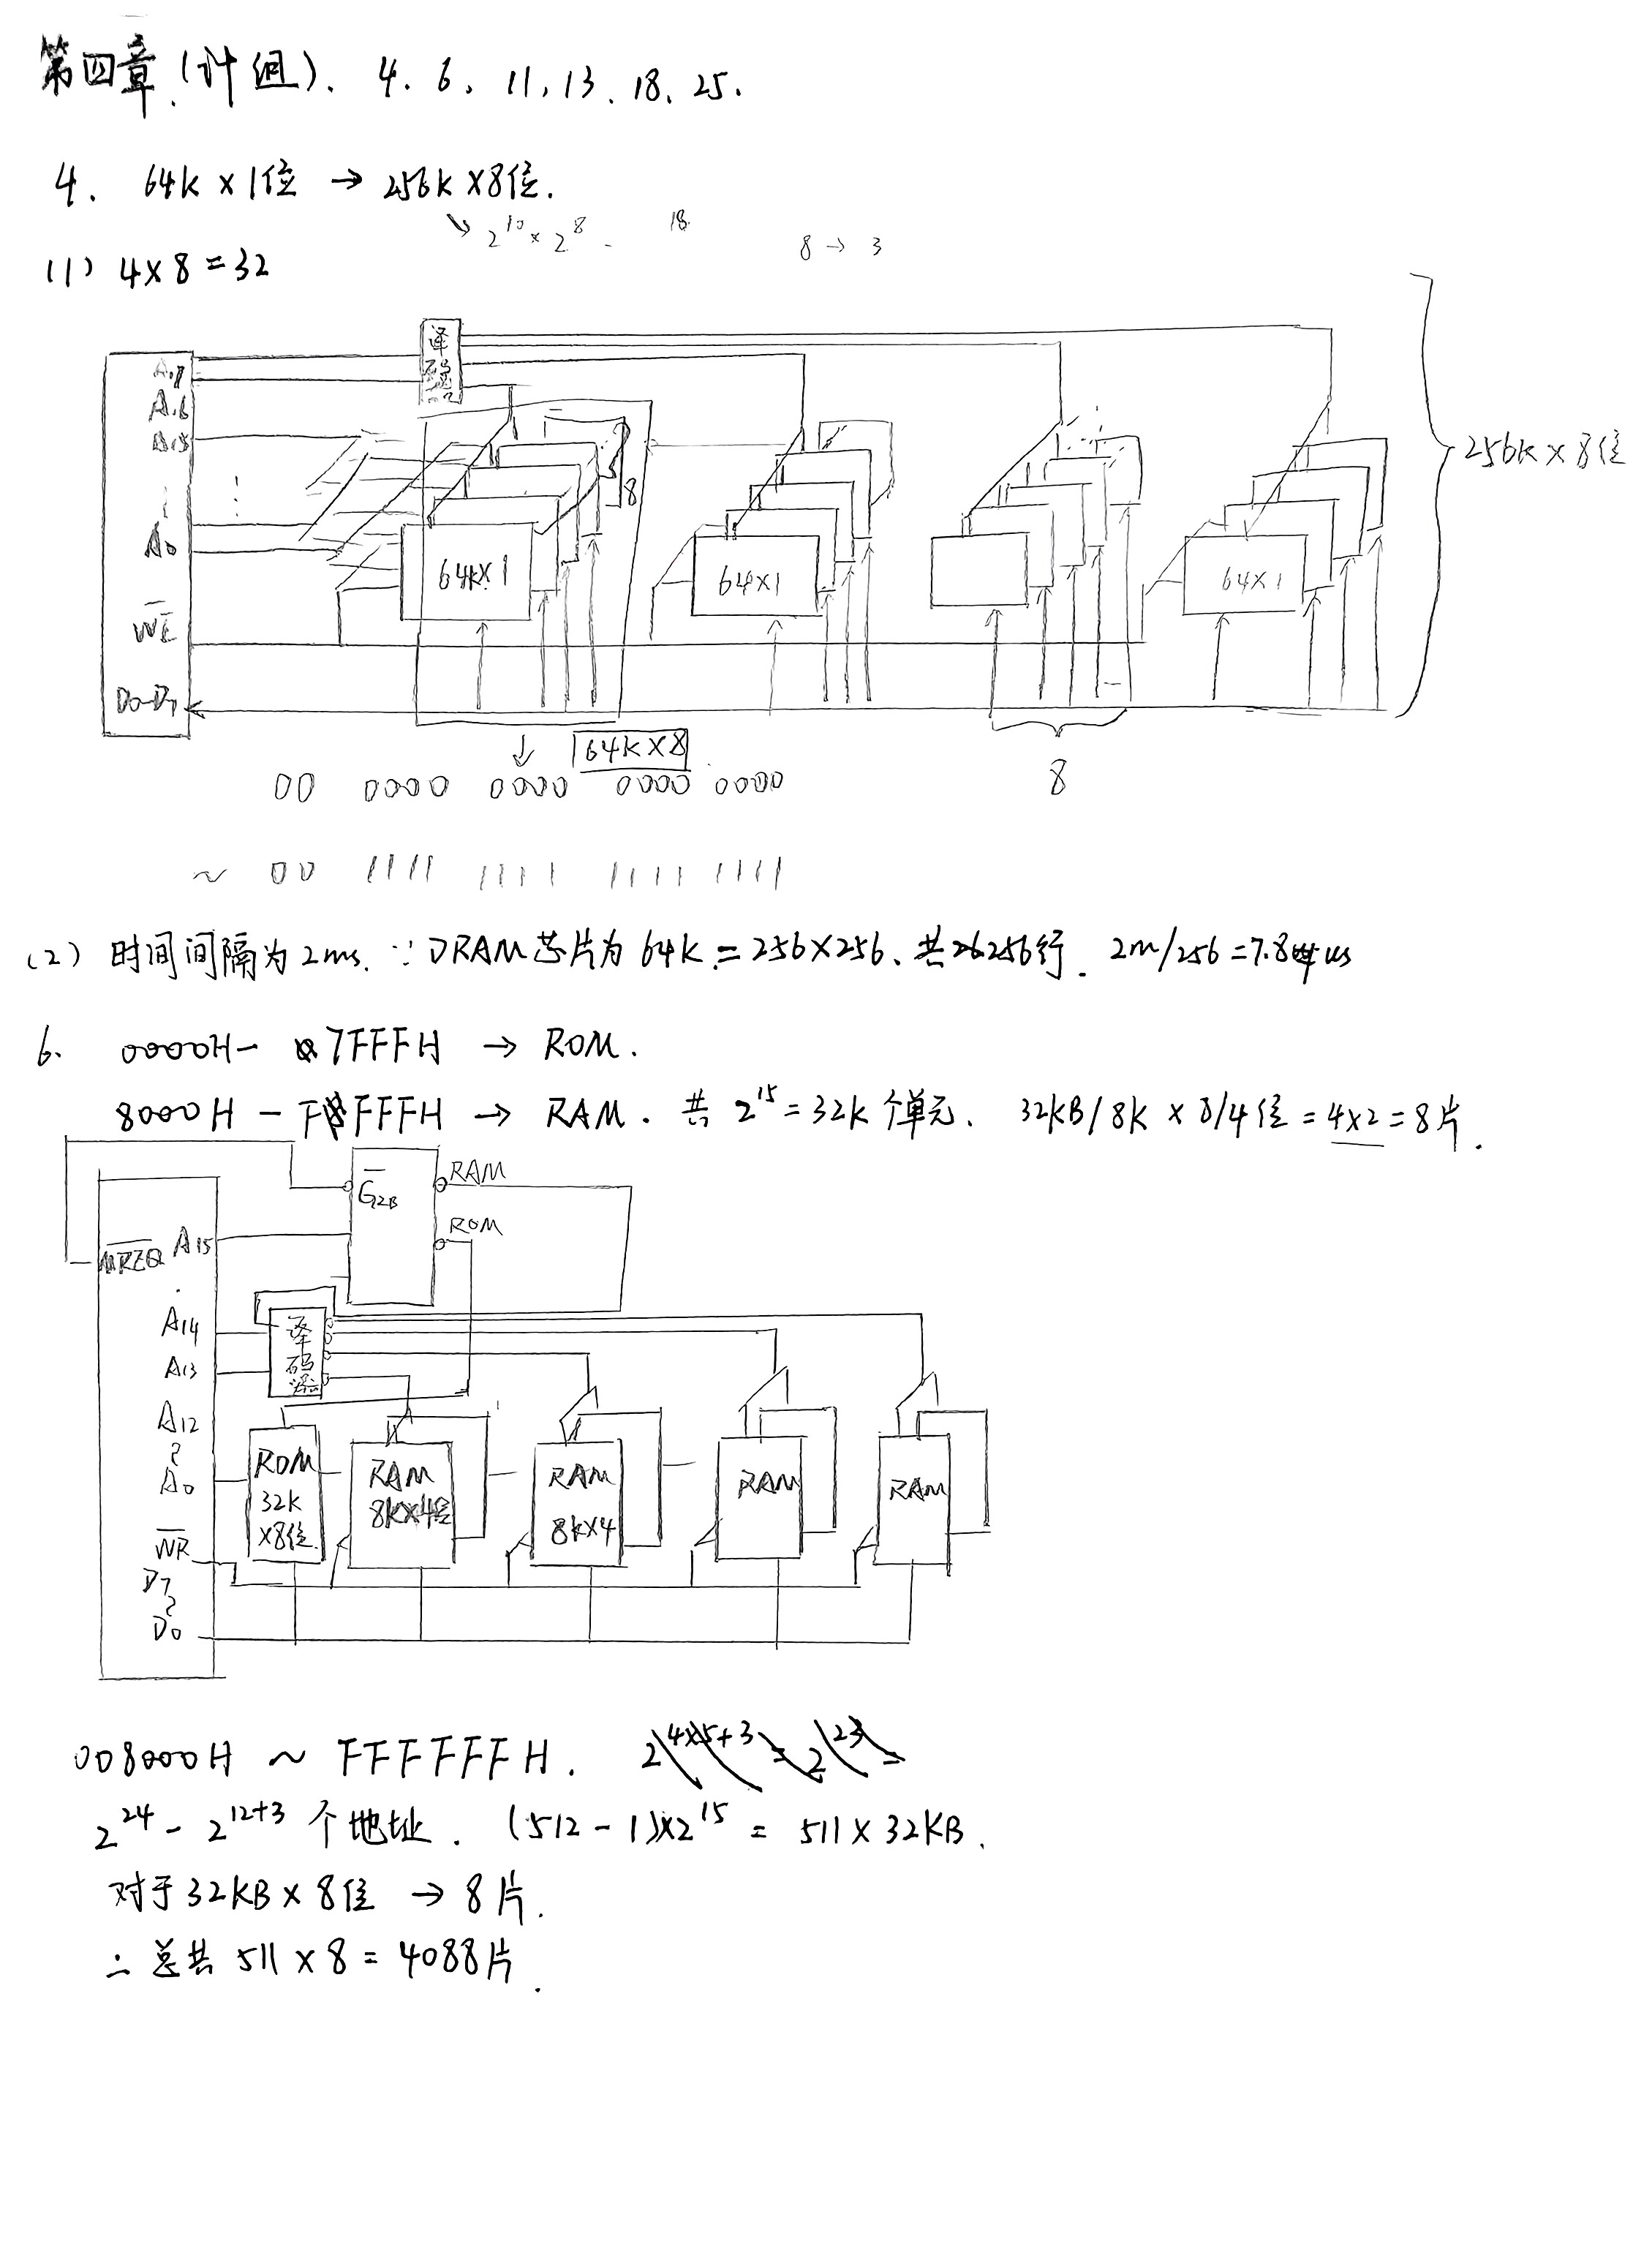 第四章.(计组). 4. 6. 11. 13. 18. 25.
4. 64K × 1位 → 256K × 8位.
↘ 2^10 × 2^8 - 18 8 → 3
(1) 4×8=32
译码器
A17
A16
A15
A0
WE
D0-D7
64K×1
8
64×1
64×1
256K × 8位
↓ 64K×8
8
00 0000 0000 0000 0000
~ 00 1111 1111 1111 1111
(2) 时间间隔为2ms. ∵ DRAM芯片为64K = 256×256、共256行. 2m/256=7.8us
6. 0000H- 7FFFH → ROM.
8000H - FFFFH → RAM. 共 2^15 = 32K 个单元、 32KB/8K × 8/4位 = 4×2 = 8片.
G2B
RAM
ROM
MREQ
A15
A14
A13
译码器
A12
A0
WR
D7
D0
ROM
32K
×8位
RAM
8K×4位
RAM
8K×4
RAM
RAM
008000H ~ FFFFFFH.
2^24 - 2^12+3 个地址. (512-1)×2^15 = 511×32KB.
对于32KB × 8位 → 8片.
∴ 总共 511 × 8 = 4088片.